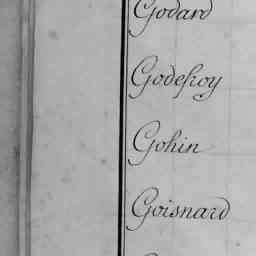 Godard
Godefroy
Gohin
Goisnard